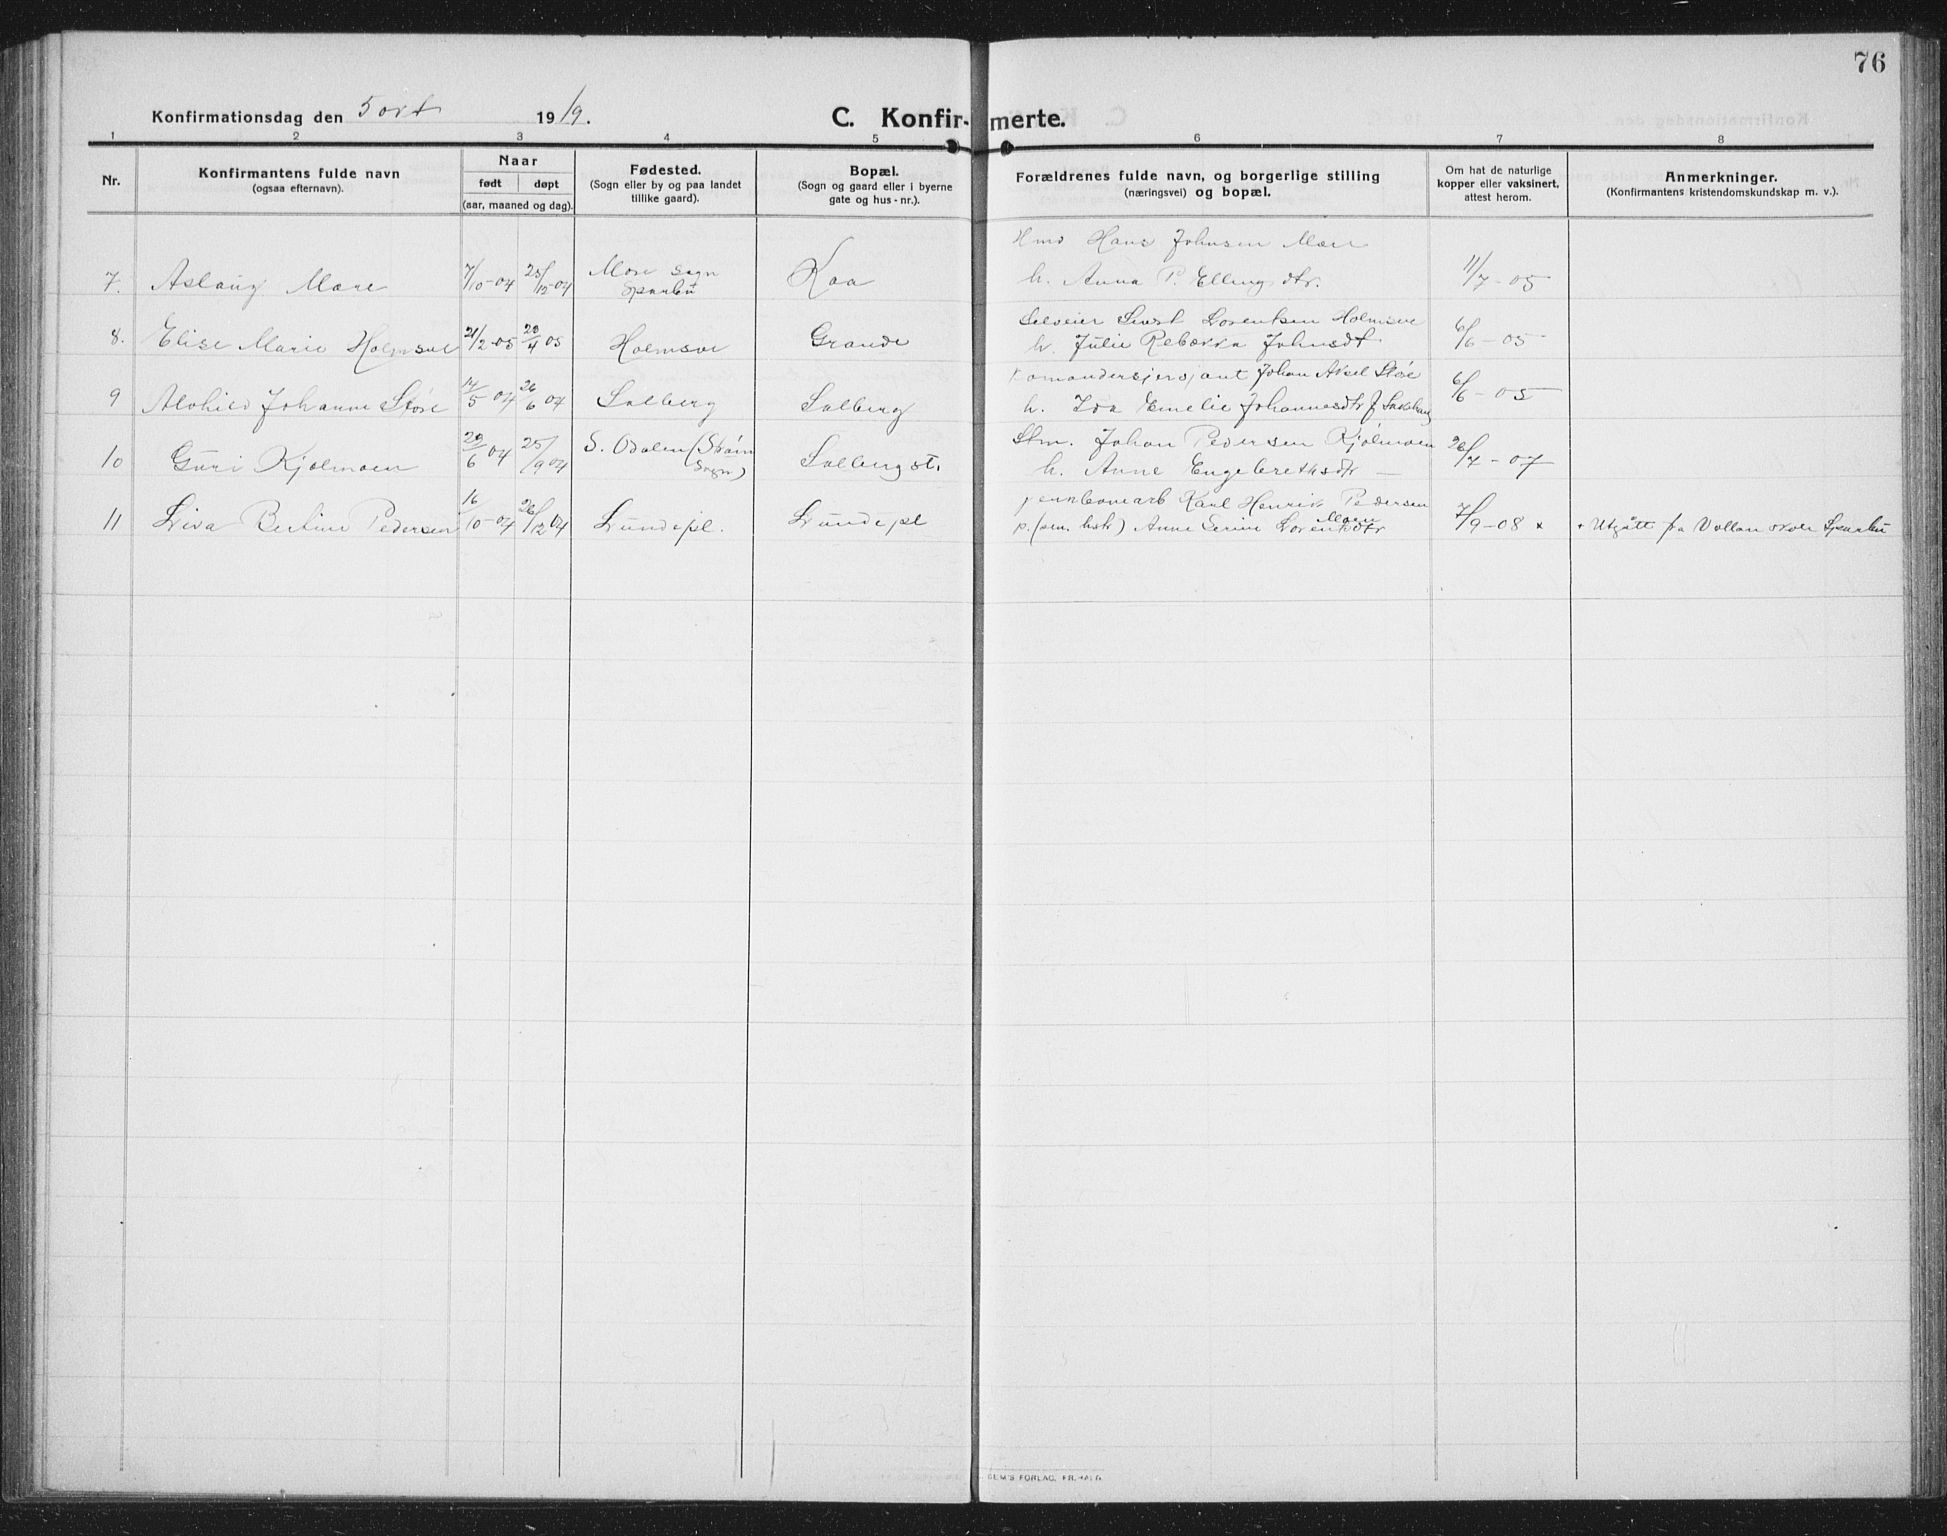 76
Konfirmationsdag den 5 okt 1919.
C. Konfirmerte.
1 2 3 4 5 6 7 8
Nr.
Konfirmantens fulde navn
(ogsaa efternavn).
Naar
født døpt
(aar, maaned og dag).
Fødested.
(Sogn eller by og paa landet
tillike gaard).
Bopæl.
(Sogn og gaard eller i byerne
gate og hus-nr.).
Forældrenes fulde navn, og borgerlige stilling
(næringsvei) og bopæl.
Om hat de naturlige
kopper eller vaksinert,
attest herom.
Anmerkninger.
(Konfirmantens kristendomskundskap m. v.).
Hmd Hans Johnsen Mære
7. Aslaug Mære 7/10-04 25/12-04 Mære sogn Sparbu Kaa h. Anna P. Ellingsdtr. 11/7-05
Selveier Sivert Lorentsen Holmsve
8. Elise Marie Holmsve 21/2-05 23/4 05 Holmsve Grande h. Julie Rebækka Johnsdt. 6/6-05
Komandersjersjant Johan Aksel Støre
9 Alvhild Johanne Støre 14/5 04 26/6 04 Salberg Salberg h. Ida Emelie Johannesdtr f. 6/6-05
Stm. Johan Pedersen Kjølmoen
10 Guri Kjølmoen 29/6 04 25/9 04 S. Odalen (Strøm Sogn) Salberg st. h. Anne Engebrethsdtr 26/7-07
jernbanearb Karl Henrik Pedersen
11 Liva Bertine Pedersen 16/10-04 26/12 04 Lunde pl. Lunde pl p. (sen. hstr) Anne Serine Marie Lorentsdtr 7/9-08 x + Utgått fra Vollan skole Sparbu